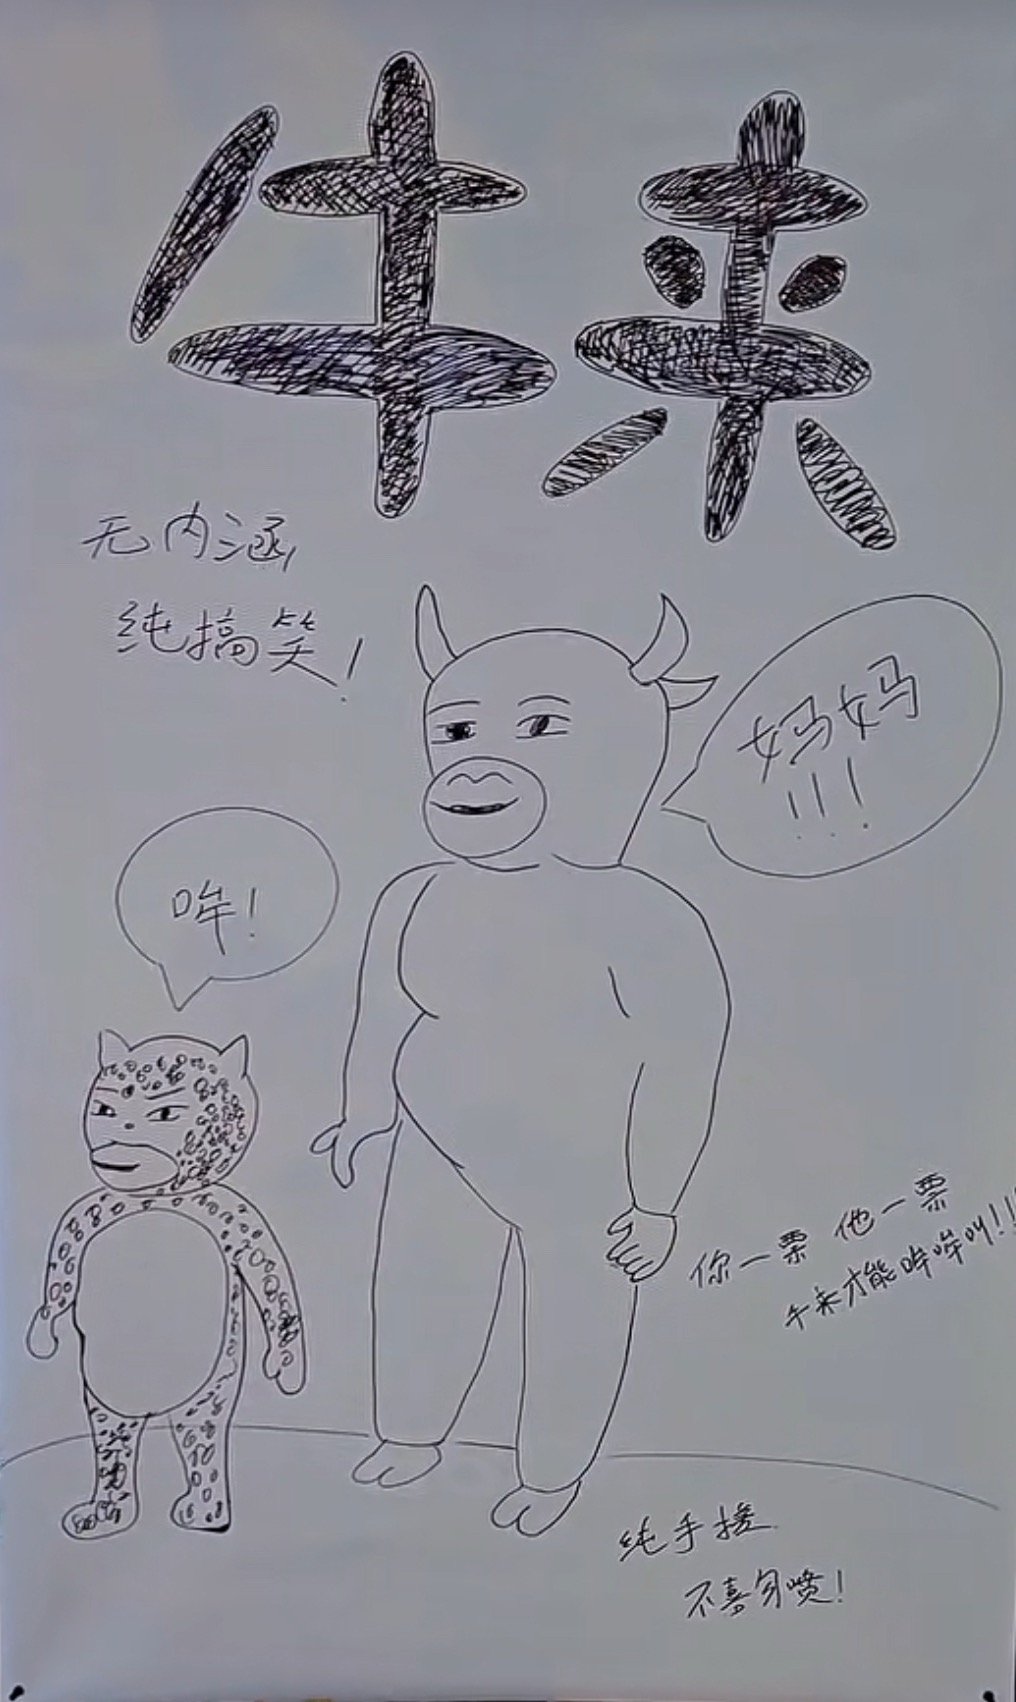 牛来
无内涵
纯搞笑！
妈妈
!!!
哞！
你一票 他一票
牛来才能哞哞叫!!!
纯手搓
不喜勿喷！